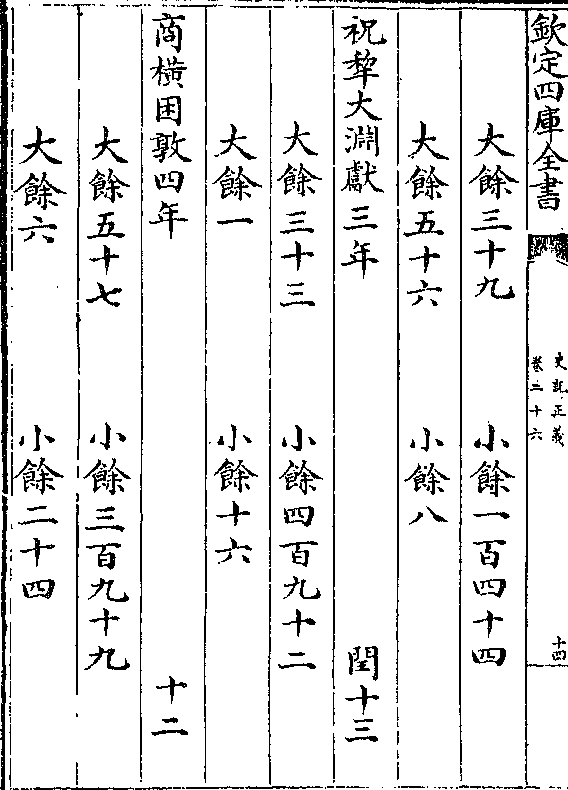 欽定四庫全書
史記正義
卷二十六
十四
大餘三十九 小餘一百四十四
大餘五十六 小餘八
祝犂大淵獻三年 閏十三
大餘三十三 小餘四百九十二
大餘一 小餘十六
商橫困敦四年 十二
大餘五十七 小餘三百九十九
大餘六 小餘二十四